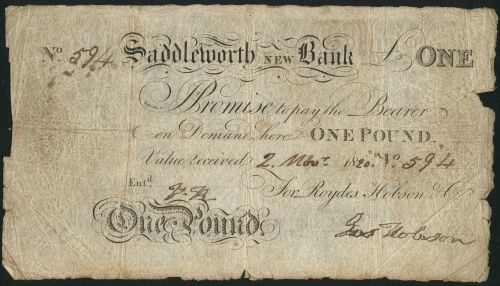 No. 594 Saddleworth NEW Bank £ ONE
I Promise to pay the Bearer
on Demand, here ONE POUND.
Value received 2 Novr. 1820 No. 594
Entd. For Roydes, Hobson & Co
One Pound. Jas Hobson